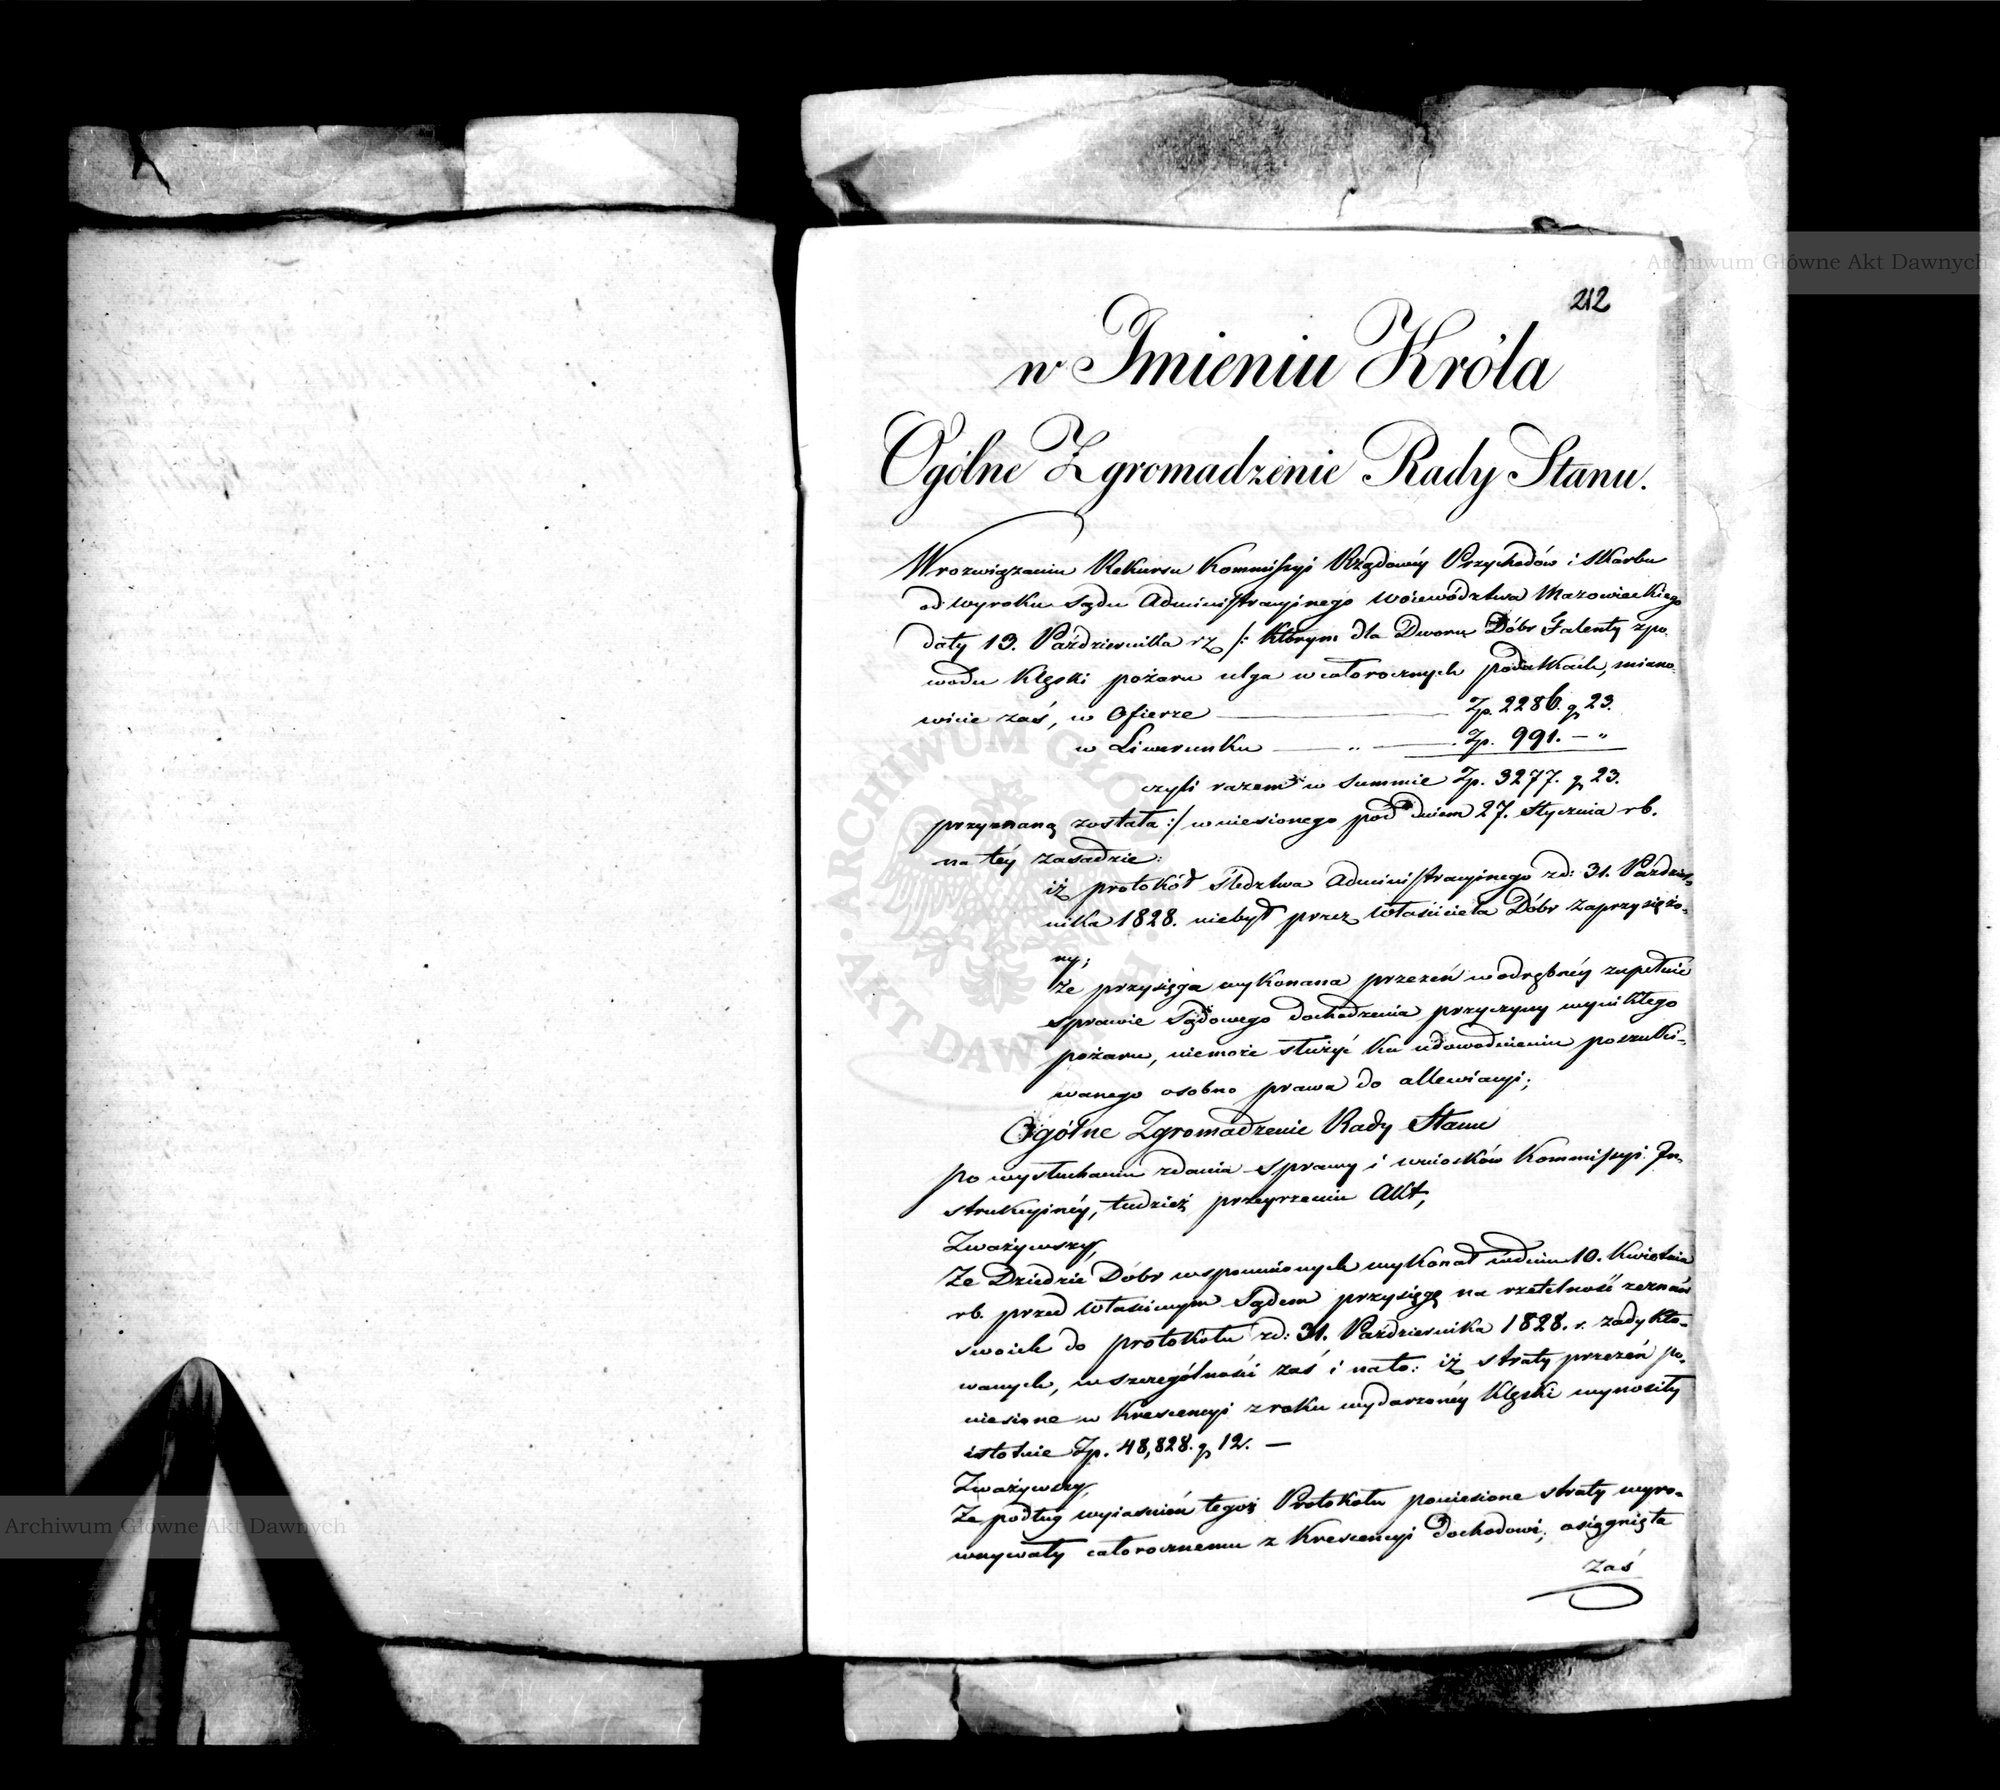 Archiwum Główne Akt Dawnych
212
w Imieniu Króla
Ogólne Zgromadzenie Rady Stanu.
W rozwiązaniu Rekursu Kommissyi Rządowéy Przychodów i Skarbu
od wyroku Sądu Administracyinego Woiewództwa Mazowieckiego
daty 13. Października rz /: którym dla Dworu Dóbr Falenty z po-
wodu klęski pożaru ulga w całorocznych podatkach, miano-
wicie zaś, w Ofierze — Zp. 2286. g 23.
w Liwerunku — „ — Zp. 991. — „
czyli razem w Summie Zp. 3277. g 23.
przyznaną została :/ wniesionego pod dniem 27. Stycznia rb.
na téy zasadzie:
iż protokół śledztwa Administracyinego z d: 31. Paździer-
nika 1828. niebył przez Właściciela Dóbr zaprzysiężo-
ny;
że przysięga wykonana przezeń w odrębnéy zupełnie
sprawie Sądowego dochodzenia przyczyny wynikłego
pożaru, niemoże służyć ku udowodnieniu poszuki-
wanego osobno prawa do allewiacyi;
Ogólne Zgromadzenie Rady Stanu
po wysłuchaniu zdania sprawy i wniosków Kommissyi In-
strukcyinéy, tudzież przeyrzeniu Akt,
Zważywszy,
Że Dziedzic Dóbr wspomnionych wykonał w dniu 10. Kwietnia
rb. przed właściwym Sądem przysięgę na rzetelność zeznań
swoich do protokołu z d: 31. Października 1828. r. zadykto-
wanych, w szczególności zaś i na to: iż straty przezeń po-
niesione w krescencyi z roku wydarzonéy klęski wynosiły
istotnie Zp. 48,828. g 12. —
Zważywszy,
Że podług wyiaśnień tegoż Protokołu poniesione straty wyro-
wnywały całorocznemu z krescencyi dochodowi, osiągnięta
zaś
ARCHIWUM GŁÓWNE AKT DAWNYCH
Archiwum Główne Akt Dawnych